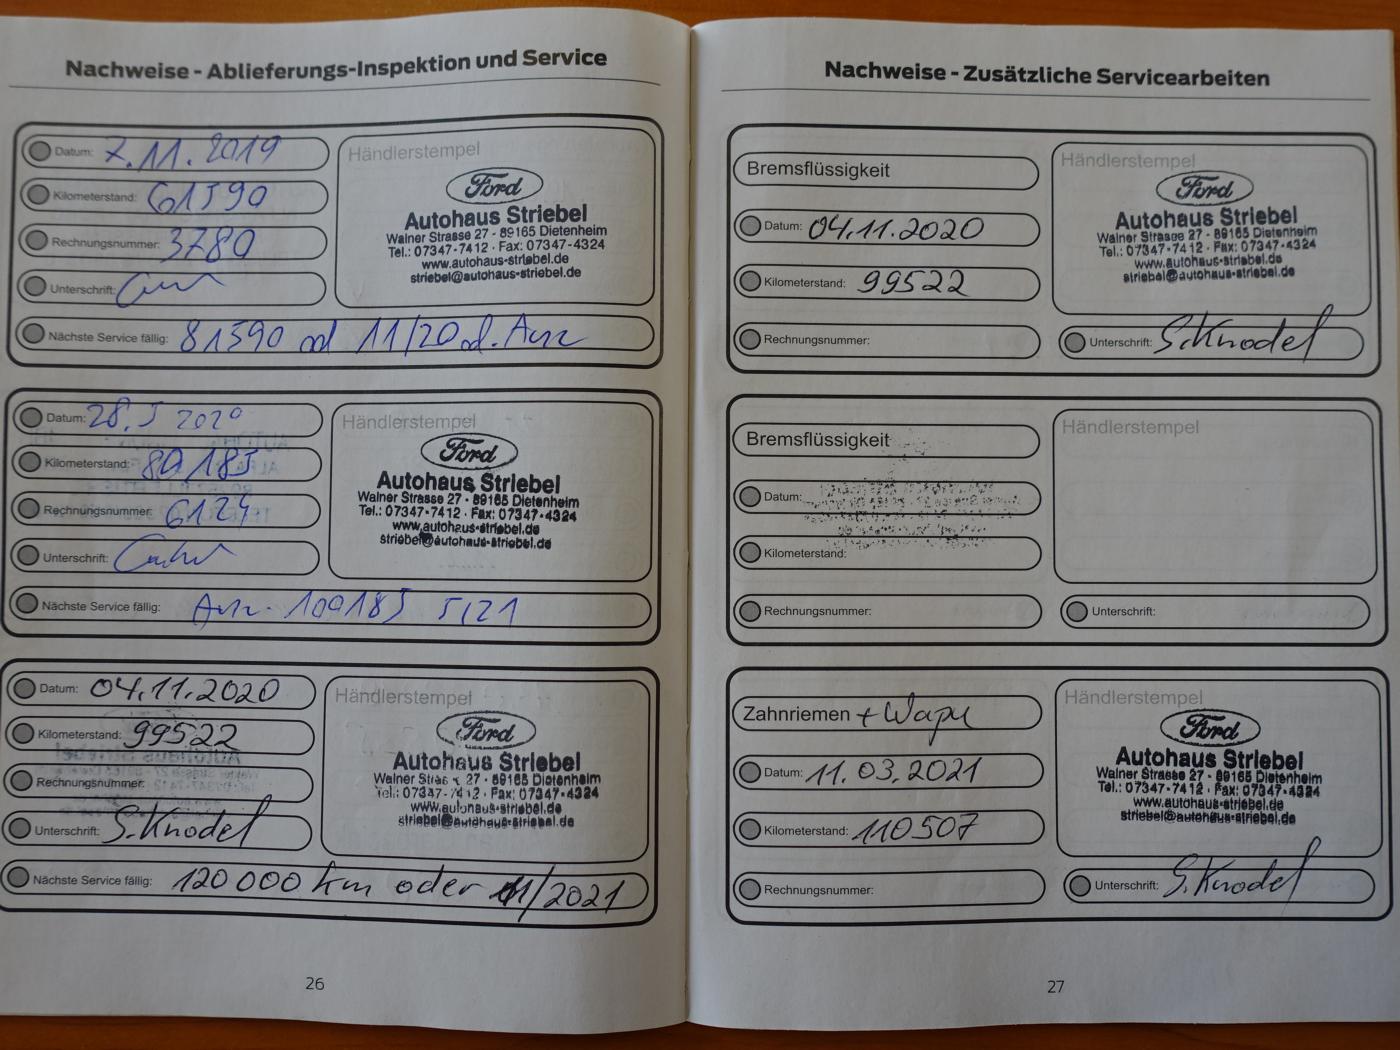 Nachweise - Ablieferungs-Inspektion und Service
Datum: 7.11.2019
Kilometerstand: 61590
Rechnungsnummer: 3780
Unterschrift:
Nächste Service fällig: 81590 od 11/20 d. Anz
Händlerstempel
Ford
Autohaus Striebel
Wainer Strasse 27 - 89165 Dietenheim
Tel.: 07347-7412 · Fax: 07347-4324
www.autohaus-striebel.de
striebel@autohaus-striebel.de
Datum: 28.5 2020
Kilometerstand: 80185
Rechnungsnummer: 6124
Unterschrift:
Nächste Service fällig: Anz. 100185 5/21
Händlerstempel
Ford
Autohaus Striebel
Wainer Strasse 27 - 89165 Dietenheim
Tel.: 07347-7412 · Fax: 07347-4324
www.autohaus-striebel.de
striebel@autohaus-striebel.de
Datum: 04.11.2020
Kilometerstand: 99522
Rechnungsnummer:
Unterschrift: S.Knodel
Nächste Service fällig: 120000 km oder 11/2021
Händlerstempel
Ford
Autohaus Striebel
Wainer Strasse 27 - 89165 Dietenheim
Tel.: 07347-7412 · Fax: 07347-4324
www.autohaus-striebel.de
striebel@autohaus-striebel.de
26
Nachweise - Zusätzliche Servicearbeiten
Bremsflüssigkeit
Datum: 04.11.2020
Kilometerstand: 99522
Rechnungsnummer:
Händlerstempel
Ford
Autohaus Striebel
Wainer Strasse 27 - 89165 Dietenheim
Tel.: 07347-7412 · Fax: 07347-4324
www.autohaus-striebel.de
striebel@autohaus-striebel.de
Unterschrift: S.Knodel
Bremsflüssigkeit
Datum:
Kilometerstand:
Rechnungsnummer:
Händlerstempel
Unterschrift:
Zahnriemen + Wapu
Datum: 11.03.2021
Kilometerstand: 110507
Rechnungsnummer:
Händlerstempel
Ford
Autohaus Striebel
Wainer Strasse 27 - 89165 Dietenheim
Tel.: 07347-7412 · Fax: 07347-4324
www.autohaus-striebel.de
striebel@autohaus-striebel.de
Unterschrift: S.Knodel
27